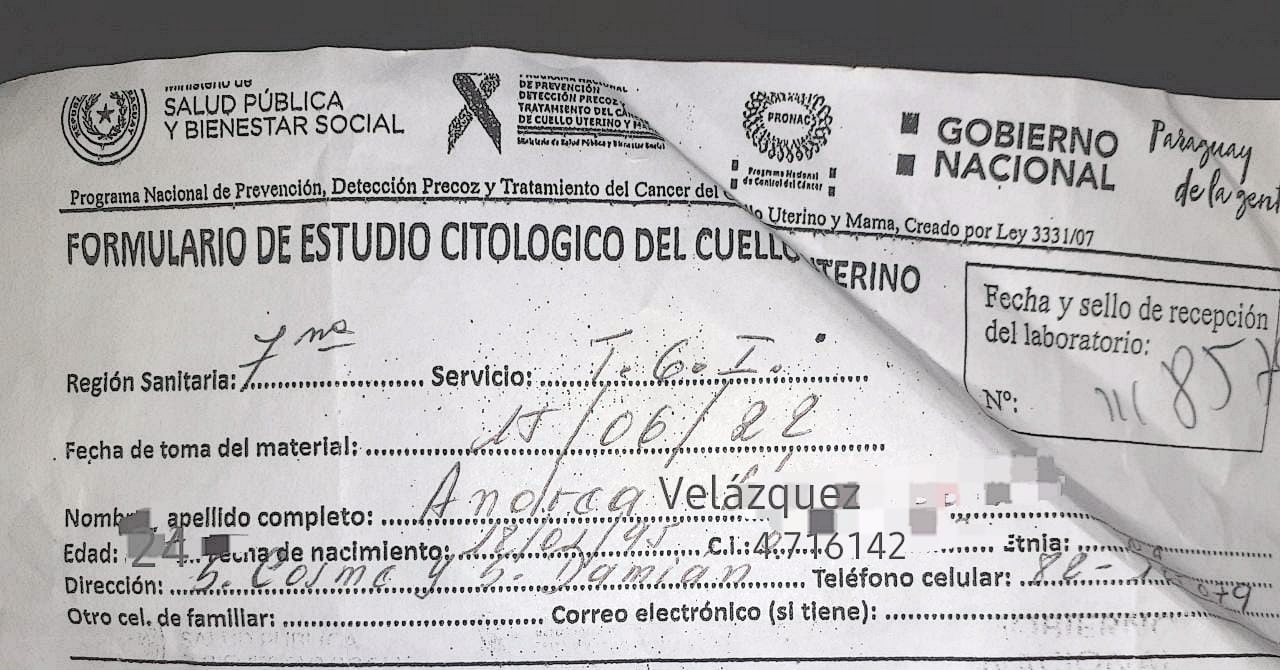 SALUD PÚBLICA
Y BIENESTAR SOCIAL
DE PREVENCIÓN,
DETECCIÓN PRECOZ Y
TRATAMIENTO DEL
DE CUELLO UTERINO Y
Ministerio de Salud Pública y Bienestar Social
PRONAC
Programa Nacional
de Control del Cáncer
GOBIERNO
NACIONAL
Paraguay
de la gent
Programa Nacional de Prevención, Detección Precoz y Tratamiento del Cancer del
Uterino y Mama, Creado por Ley 3331/07
FORMULARIO DE ESTUDIO CITOLOGICO DEL CUELLO UTERINO
Fecha y sello de recepción
del laboratorio:
Nº: 857
Región Sanitaria: 7 ma Servicio: T. G. I.
Fecha de toma del material: 15/06/22
apellido completo: Andrea Velázquez
Edad: 24 fecha de nacimiento: C.I.: 4.716142 Etnia:
Dirección: S. Cosme y S. Damian Teléfono celular:
Otro cel. de familiar: Correo electrónico (si tiene):